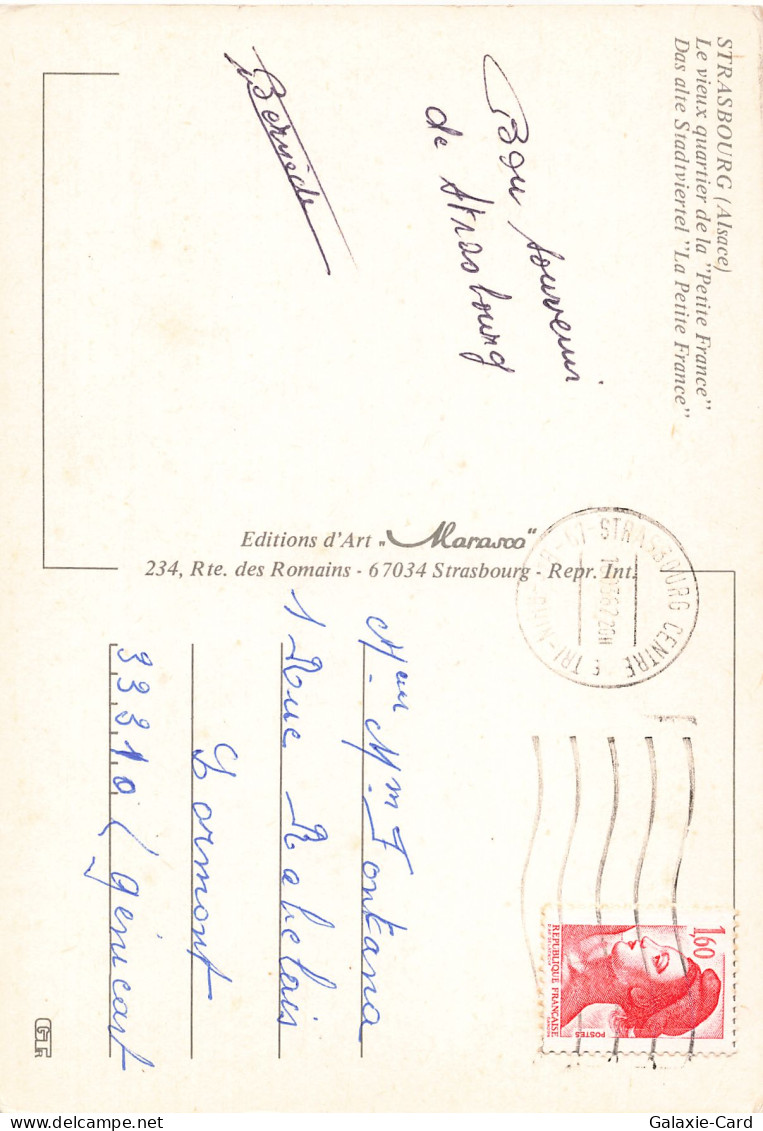 STRASBOURG (Alsace)
Le vieux quartier de la "Petite France"
Das alte Stadtviertel "La Petite France"
Bon souvenir
de Strasbourg
Editions d'Art „Marasco"
234, Rte. des Romains - 67034 Strasbourg - Repr. Int.
STRASBOURG CENTRE
1,60
REPUBLIQUE FRANÇAISE
POSTES
Mr Mme Fontana
1 Rue Rabelais
Lormont
33310 (génicart
Galaxie-Card